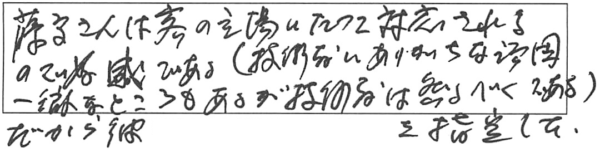 藤子さんは客の立場にたって対応される
ので好感である（技術者にありがちな頑固
一徹なところもあるが技術者は然るべくである）
だから彼 を指定した．